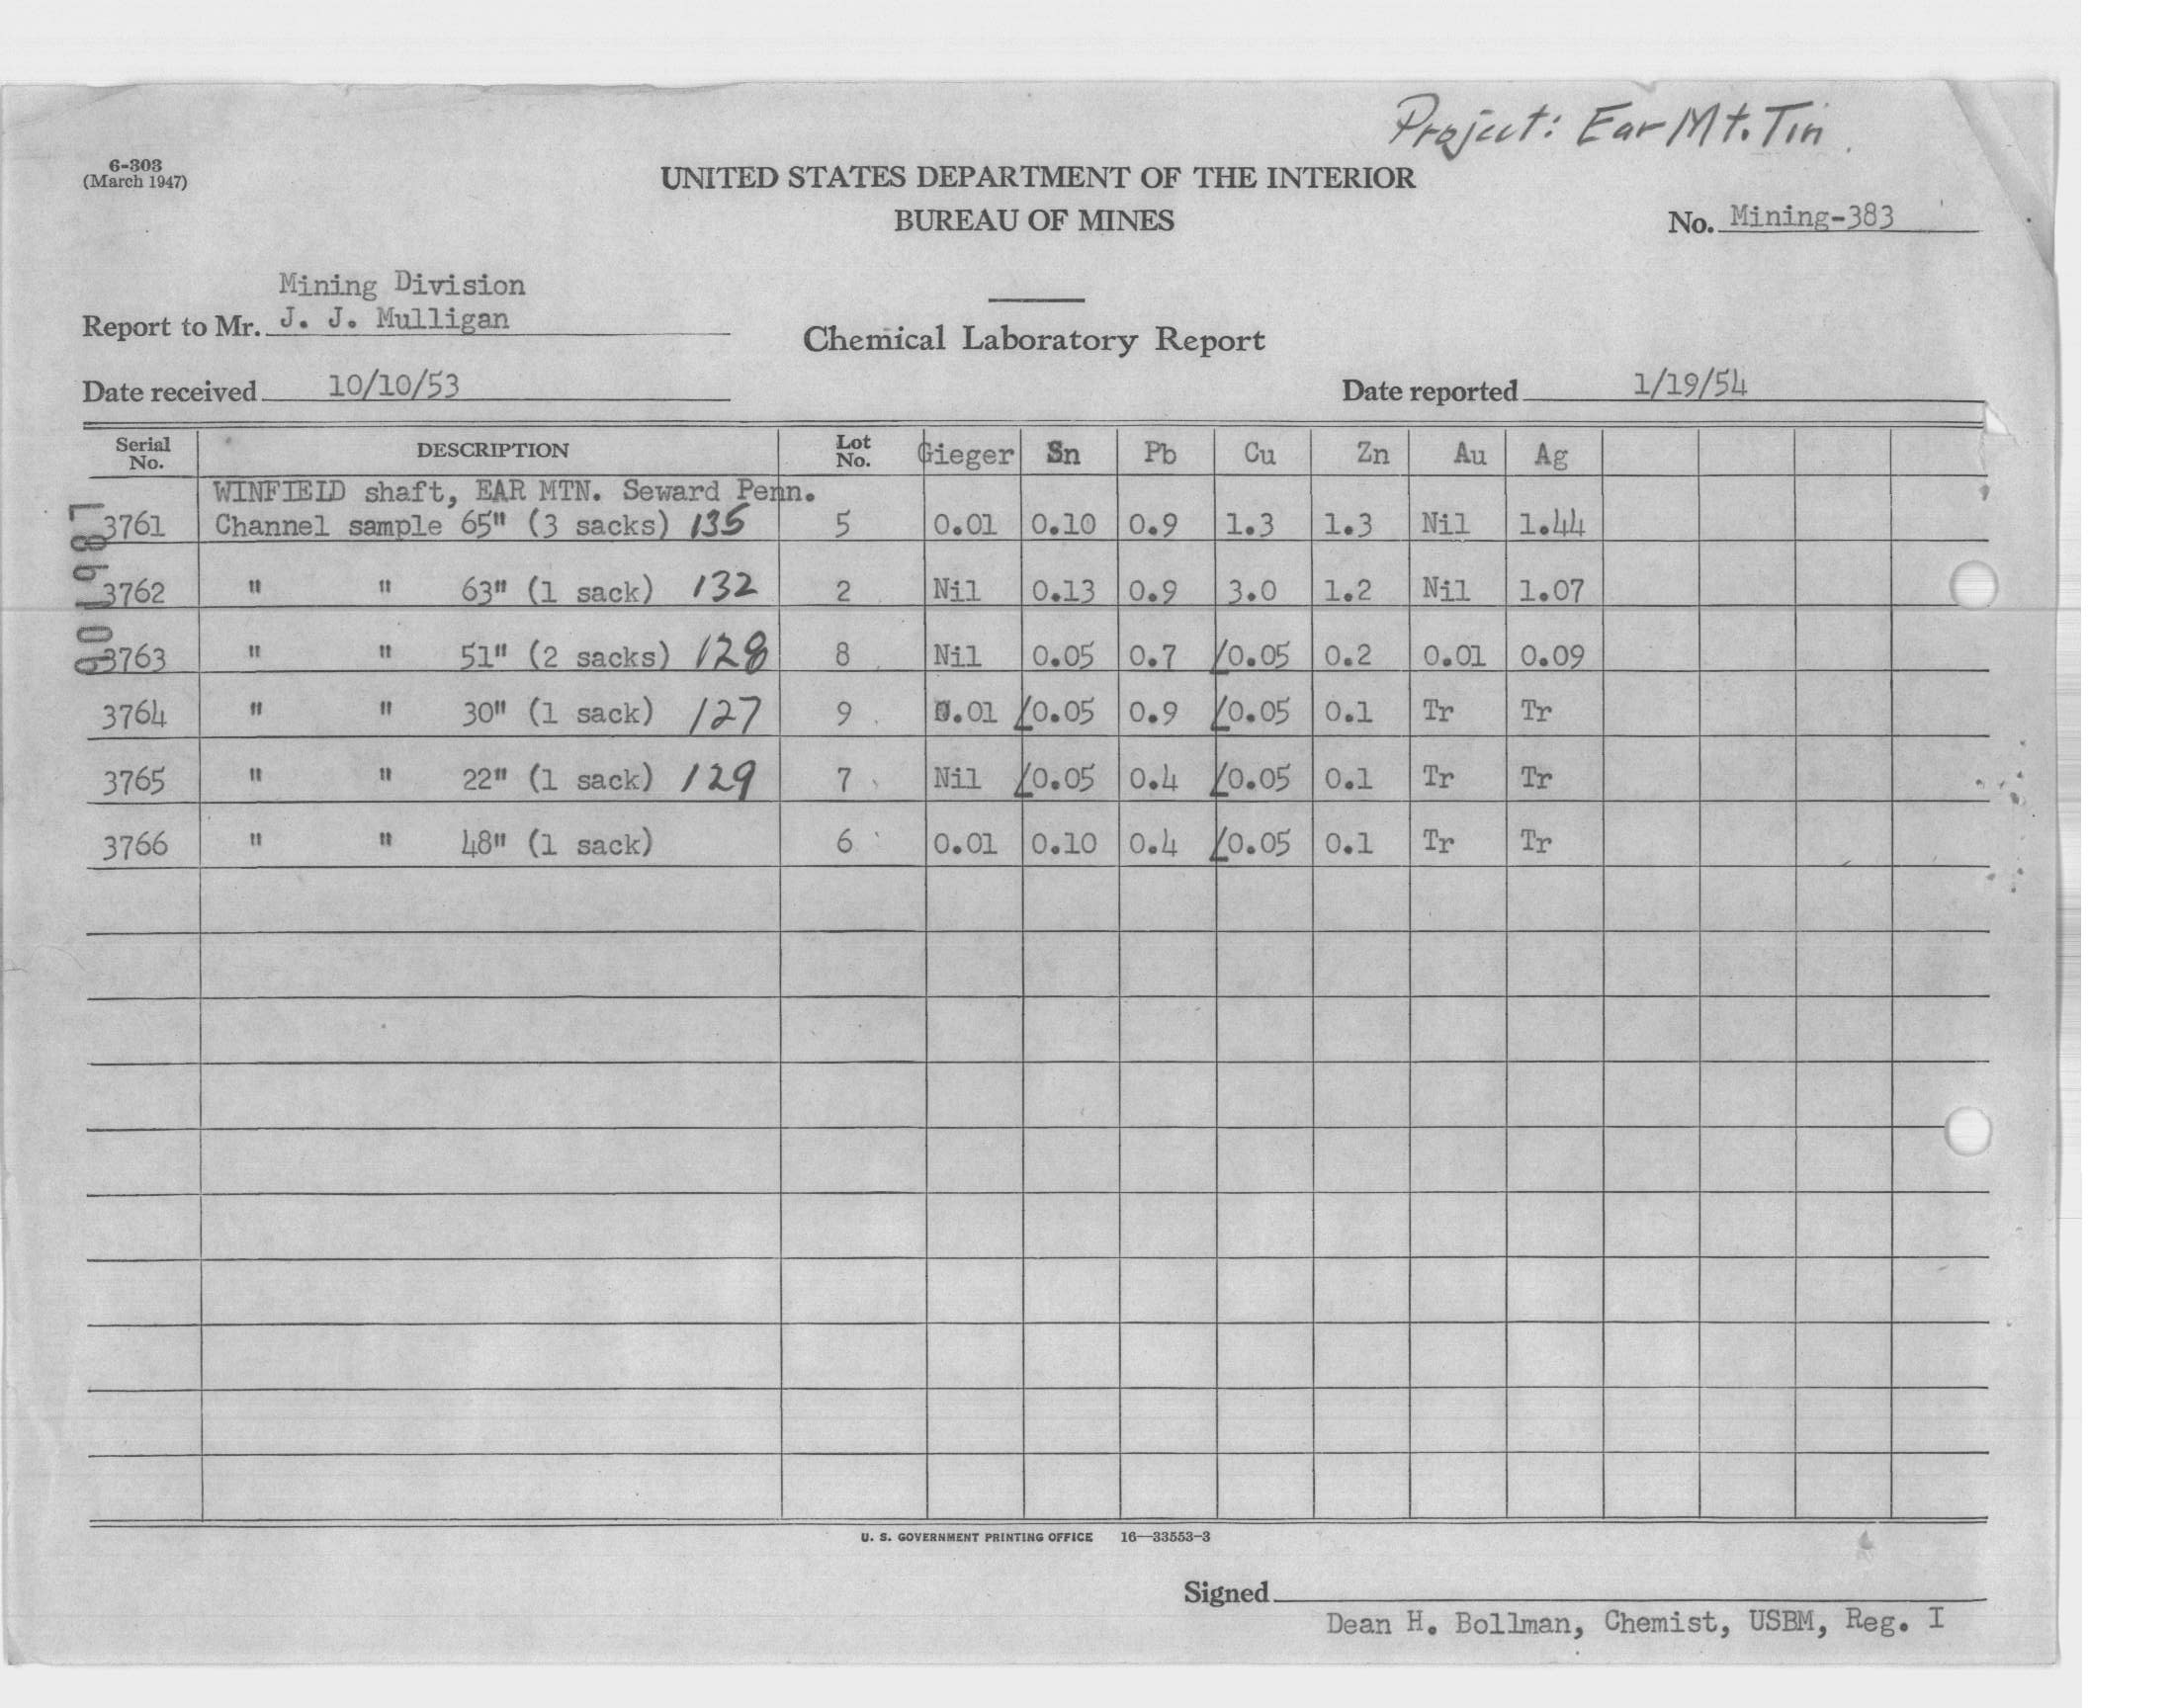 Project: Ear Mt. Tin.
6-303
(March 1947)
UNITED STATES DEPARTMENT OF THE INTERIOR
BUREAU OF MINES
No. Mining-383
Mining Division
Report to Mr. J. J. Mulligan
Chemical Laboratory Report
Date received 10/10/53
Date reported 1/19/54
Serial No. DESCRIPTION Lot No. Gieger Sn Pb Cu Zn Au Ag
WINFIELD shaft, EAR MTN. Seward Penn.
3761 Channel sample 65" (3 sacks) 135 5 0.01 0.10 0.9 1.3 1.3 Nil 1.44
3762 " " 63" (1 sack) 132 2 Nil 0.13 0.9 3.0 1.2 Nil 1.07
3763 " " 51" (2 sacks) 128 8 Nil 0.05 0.7 <0.05 0.2 0.01 0.09
3764 " " 30" (1 sack) 127 9 0.01 <0.05 0.9 <0.05 0.1 Tr Tr
3765 " " 22" (1 sack) 129 7 Nil <0.05 0.4 <0.05 0.1 Tr Tr
3766 " " 48" (1 sack) 6 0.01 0.10 0.4 <0.05 0.1 Tr Tr
U. S. GOVERNMENT PRINTING OFFICE 16—33553-3
Signed
Dean H. Bollman, Chemist, USBM, Reg. I